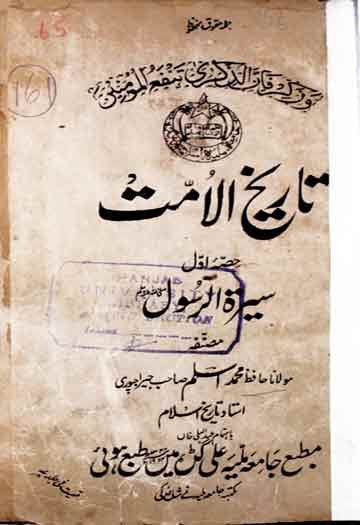 جملہ حقوق محفوظ
65
161
وذکر فان الذکریٰ تنفع المومنین
تاریخ الامّت
حصّہ اوّل
سیرۃ الرسول
PANJAB
UNIVERSITY
مصنفہ
مولانا حافظ محمد اسلم صاحب جیراجپوری
استاد تاریخ اسلام
مطبع جامعہ ملیہ علی گڑھ میں طبع ہوئی